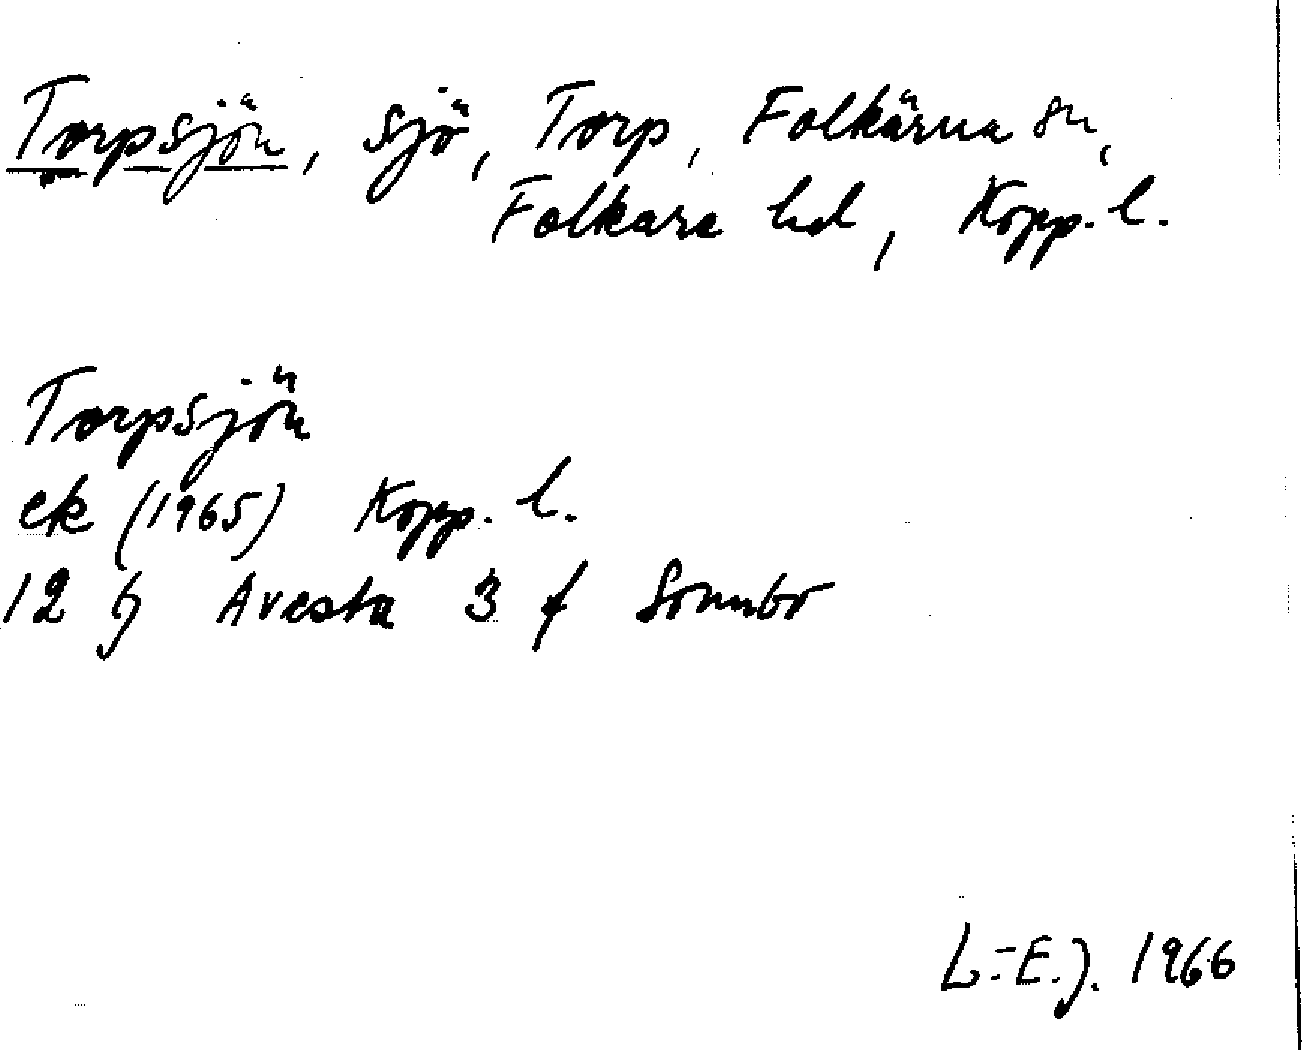 Torpsjön, sjö, Torp, Folkärna sn,
Folkare hd, Kopp. l.
Torpsjön
ek (1965) Kopp. l.
12 G Avesta 3 f Sonnbo
L.-E.J. 1966